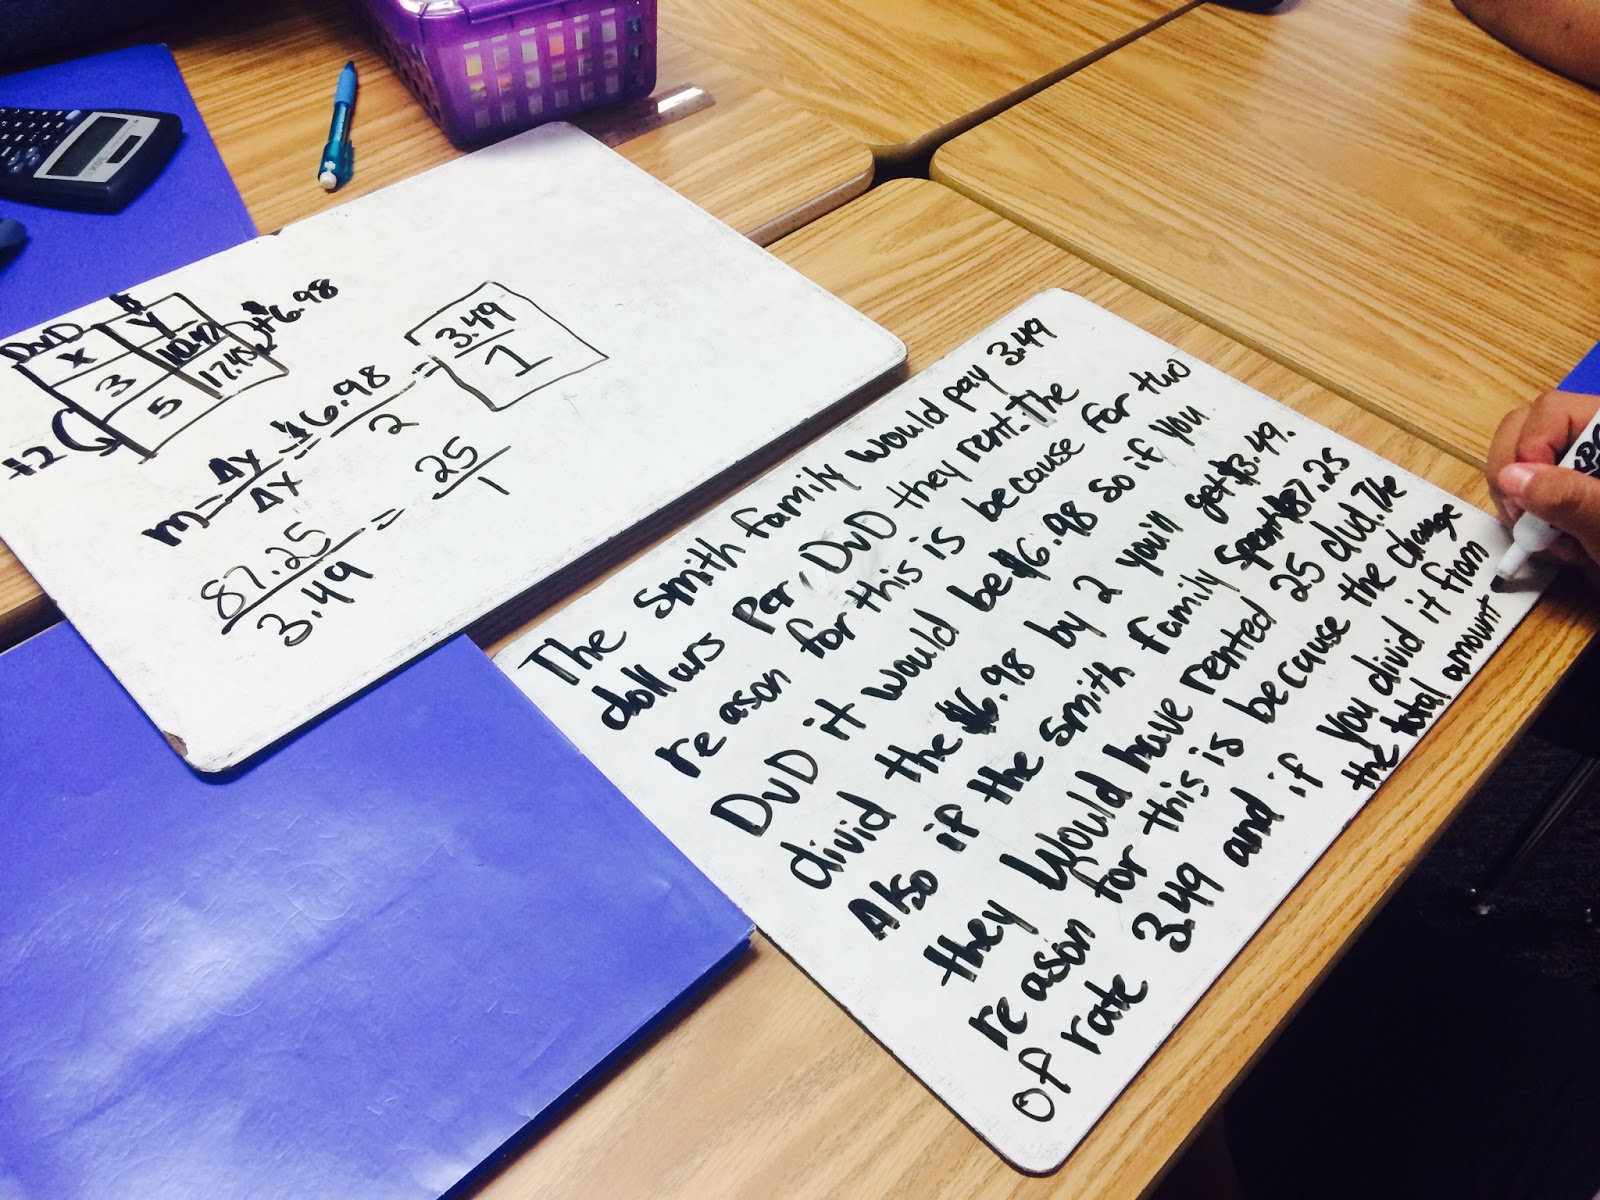 DVD $
x y
3 10.47
5 17.45
+2
+$6.98
m = Δy/Δx = $6.98/2 = 3.49/1
87.25/3.49 = 25/1
The Smith family would pay 3.49
dollars per DVD they rent. The
reason for this is because for two
DVD it would be $6.98 so if you
divid the $6.98 by 2 you'll get $3.49.
Also if the Smith family spent $87.25
they would have rented 25 dvd. The
reason for this is because the change
of rate 3.49 and if you divid it from
the total amount